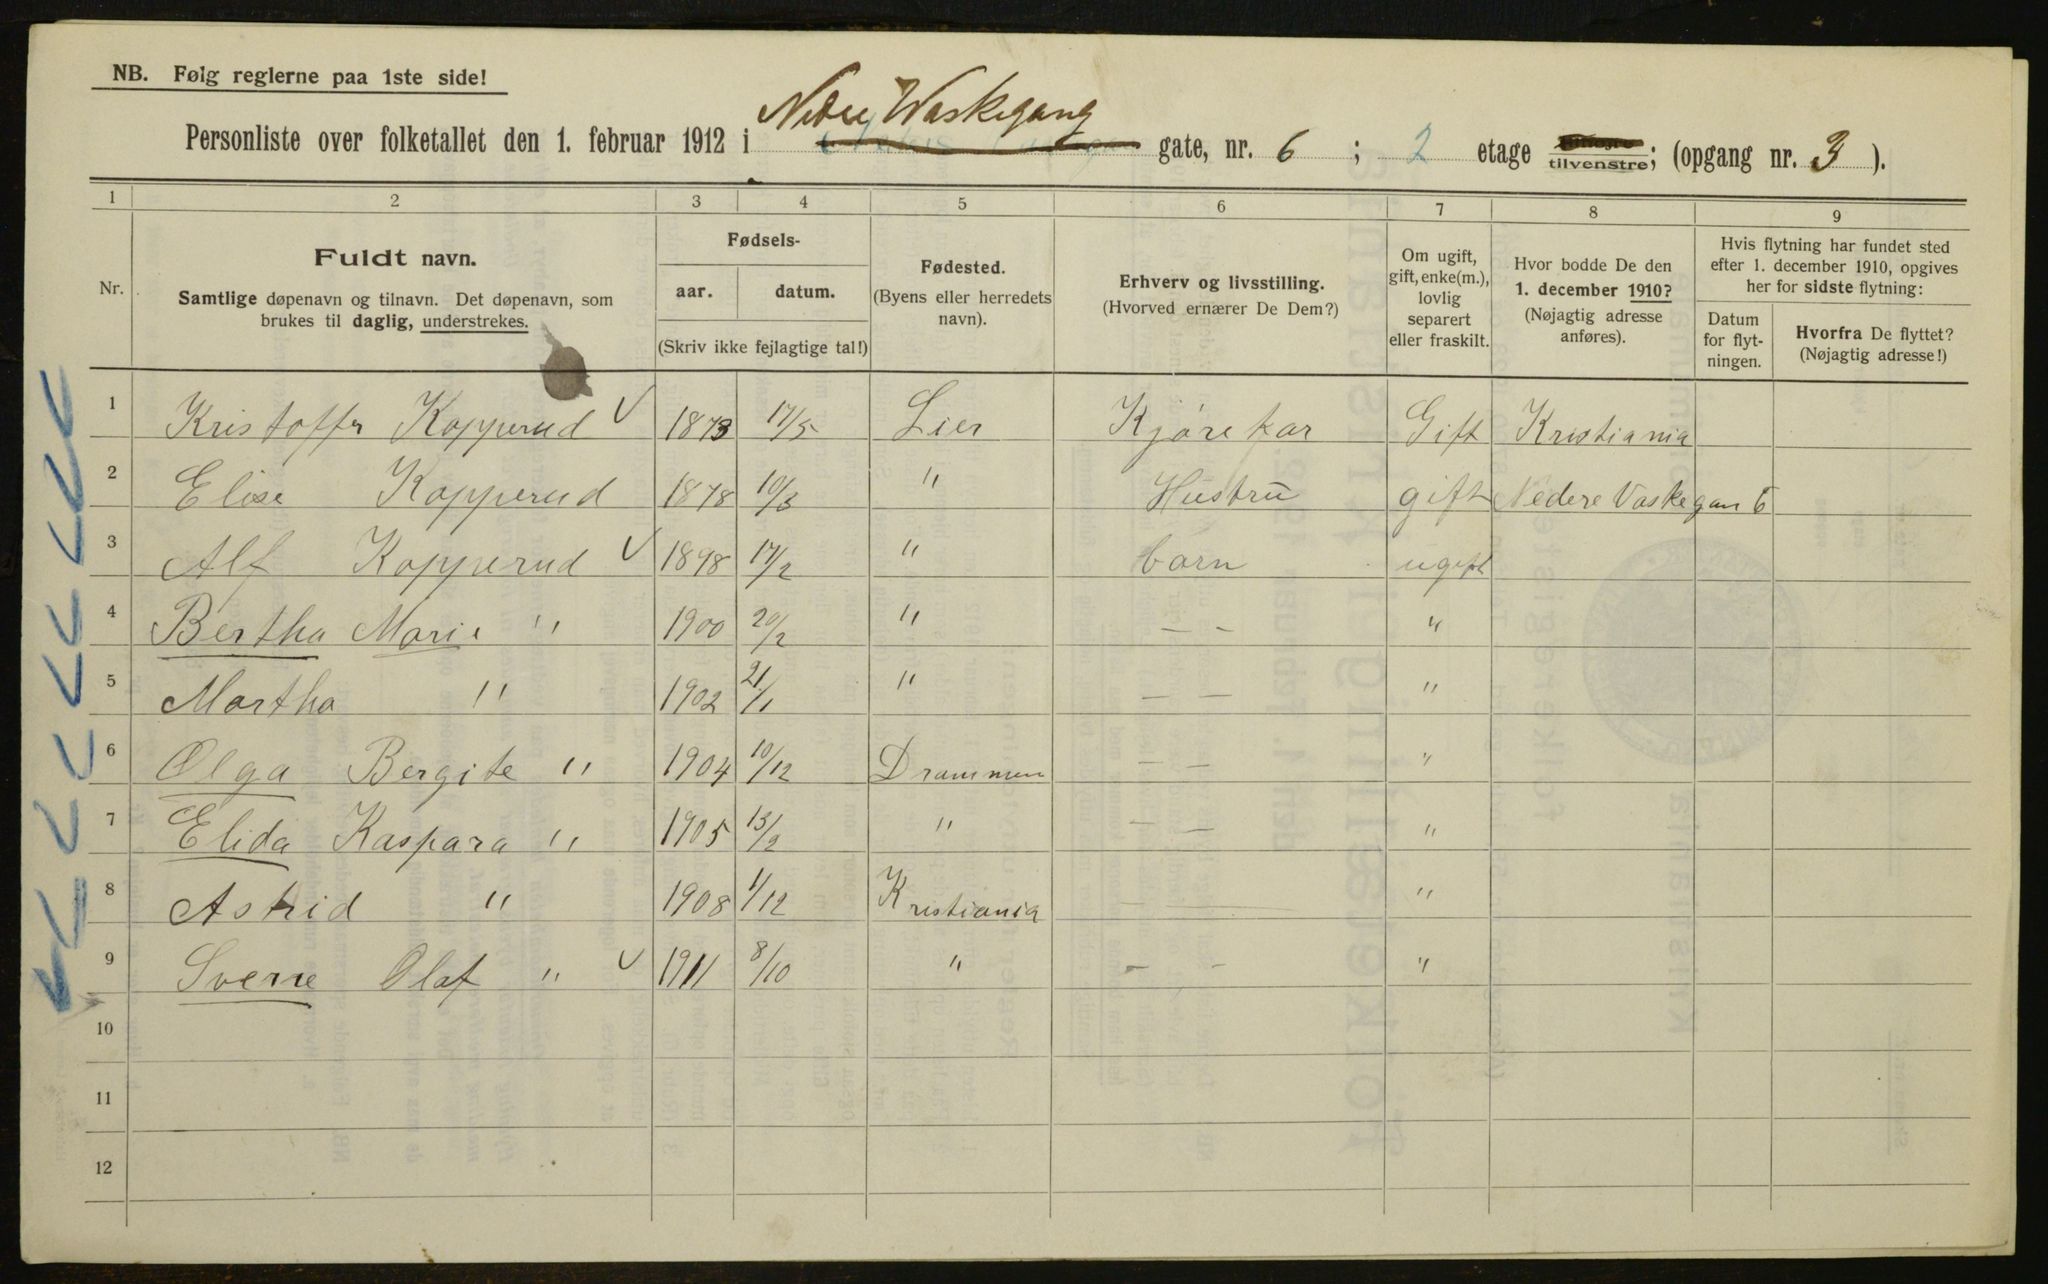 NB. Følg reglerne paa 1ste side!
Nedre Waskegang
Personliste over folketallet den 1. februar 1912 i gate, nr. 6 ; 2 etage tilvenstre; (opgang nr. 3 ).
1 2 3 4 5 6 7 8 9
Nr. Fuldt navn. Samtlige døpenavn og tilnavn. Det døpenavn, som brukes til daglig, understrekes.
Fødsels- aar. datum. (Skriv ikke fejlagtige tal!)
Fødested. (Byens eller herredets navn).
Erhverv og livsstilling. (Hvorved ernærer De Dem?)
Om ugift, gift, enke(m.), lovlig separert eller fraskilt.
Hvor bodde De den 1. december 1910? (Nøjagtig adresse anføres).
Hvis flytning har fundet sted efter 1. december 1910, opgives her for sidste flytning:
Datum for flyt-ningen.
Hvorfra De flyttet? (Nøjagtig adresse!)
1 Kristoffer Kopperud 1873 17/5 Lier Kjørekar Gift Kristiania
2 Elise Kopperud 1878 10/3 " Hustru gift Nedere Vaskegan 6
3 Alf Kopperud 1898 17/2 " barn ugift
4 Bertha Marie " 1900 20/2 " — — "
5 Martha " 1902 21/1 " — — "
6 Olga Bergite " 1904 10/12 Drammen — — "
7 Elida Kaspara " 1905 13/2 " — — "
8 Astrid " 1908 1/12 Kristiania — — "
9 Sverre Olaf " 1911 8/10 " — — "
10
11
12